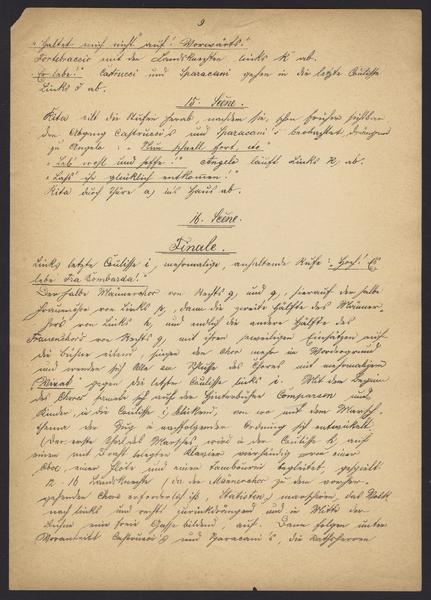 9
"Haltet mich nicht auf! Vorwärts!"
Fortebraccio mit den Landsknechten links k ab.
"Er lebe!" Castrucci und Sparacani gehen in die letzte Coulisse
Links i ab.
15. Scene.
Rita eilt die Stufen herab, nachdem sie, schon früher sichtbar
den Abgang Castrucci's und Sparacani's beobachtet, drängend
zu Angelo: "Nun schnell fort, etc"
"Leb' wohl und hoffe!" Angelo läuft Links k, ab.
"Lass' ihn glücklich entkommen!"
Rita durch Thüre a, ins Haus ab.
16. Scene.
Finale.
Links letzte Coulisse i, mehrmalige, anhaltende Rufe: "Hoch! Es
lebe Fra Bombarda!"
Der halbe Männerchor von Rechts g, und q, hierauf der halbe
Frauenchor von Links p, dann die zweite Hälfte des Männer-
chors von Links k, und endlich die andere Hälfte des
Frauenchors von Rechts g, mit ihren jeweiligen Einsätzen auf
die Bühne eilend, singen den Chor mehr im Vordergrund
und wenden sich Alle am Schluße des Chores mit mehrmaligem
"Vivat" gegen die letzte Coulisse links i. Mit dem Beginn
des Chores sammeln sich auf der Hinterbühne Comparsen und
Kinder, in die Coulisse i, blickend, von wo mit dem Marsch-
thema der Zug in nachfolgender Ordnung sich entwickelt:
(Der erste Theil des Marsches wird in der Coulisse k, auf
einem mit belegten Klavier vierhändig von einer
Oboe, einer Flöte und einem Tambourin begleitet, gespielt.
12-16 Landsknechte (da der Männerchor zu dem vorher-
gehenden Chor erforderlich ist, Statisten) marschiren, das Volk
nach links und rechts zurückdrängend und in Mitte der
Bühne eine freie Gasse bildend, auf. Dann folgen unter
Vorantritt Castrucci's und Sparacani's, die Rathsherren